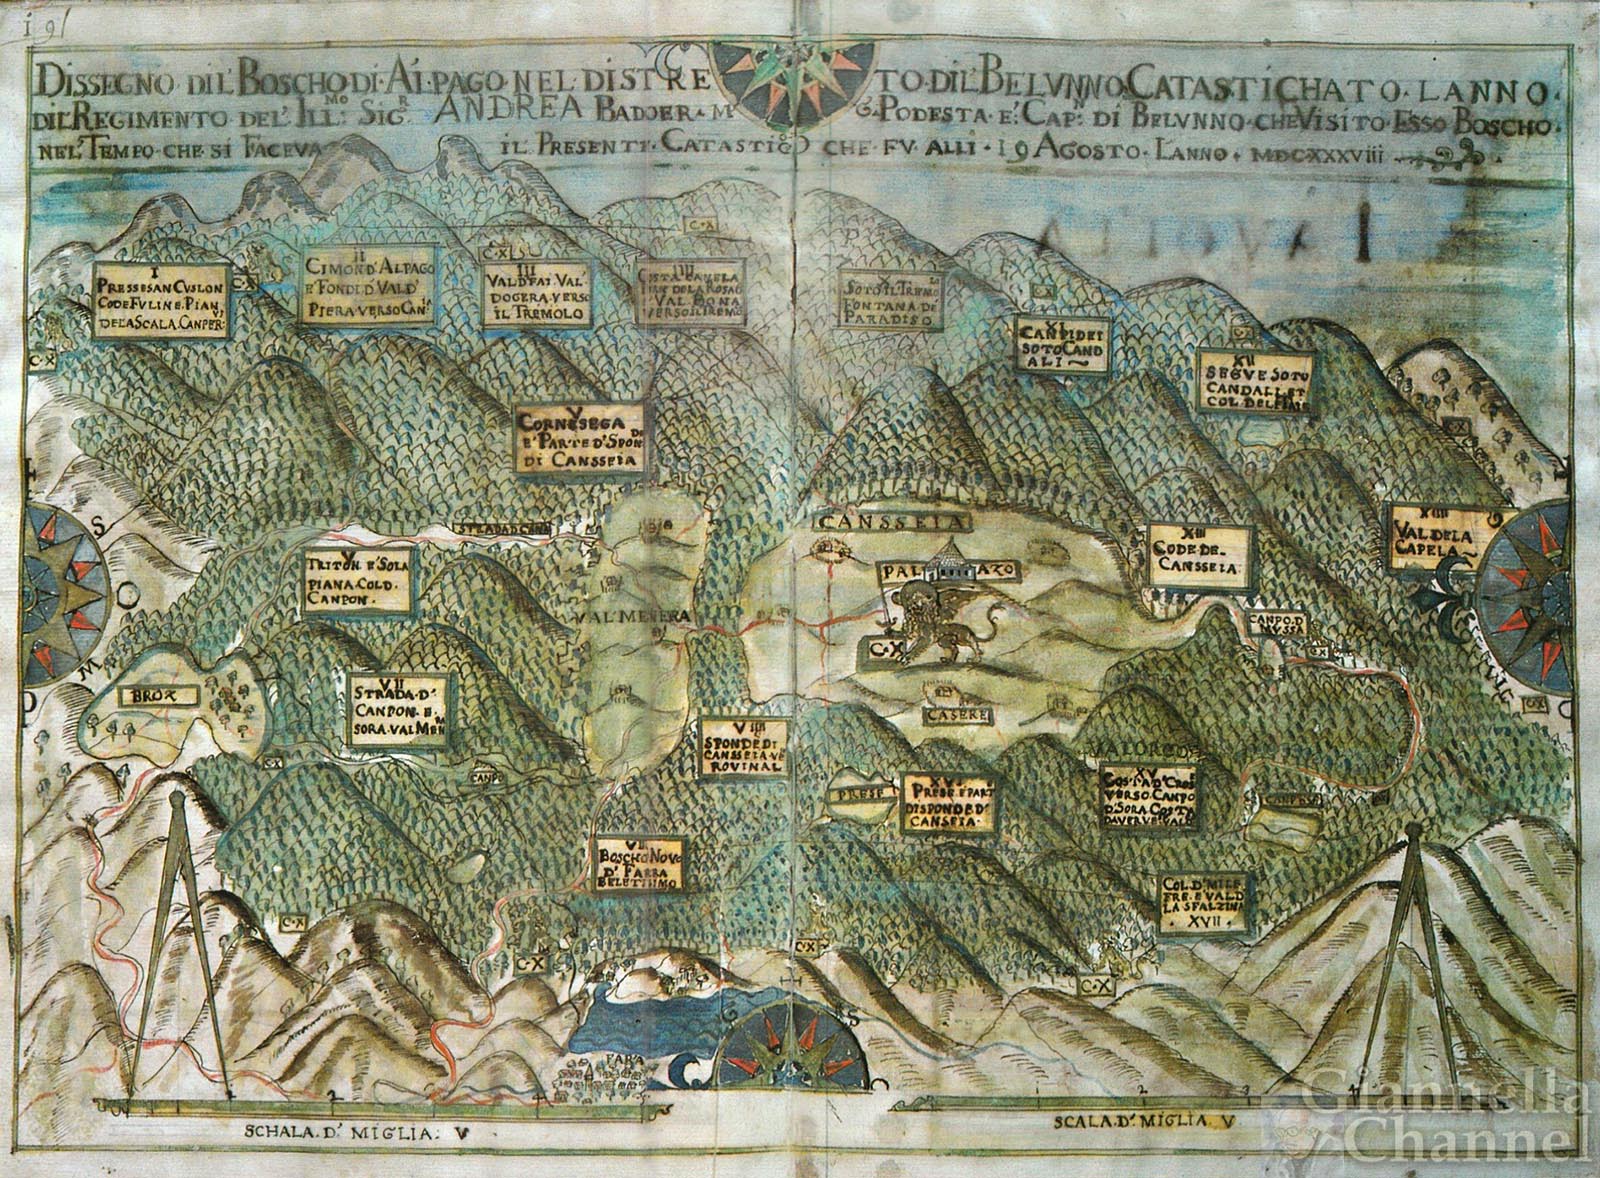 191
DISSEGNO DIL BOSCHO DI ALPAGO NEL DISTRETO DIL BELVNNO CATASTICHATO LANNO
DIL REGIMENTO DEL ILL:MO SIG.R ANDREA BADOER PODESTA E: CAP:N DI BELVNNO CHE VISITO ESSO BOSCHO
NEL TEMPO CHE SI FACEVA IL PRESENTE CATASTICO CHE FV ALLI 19 AGOSTO LANNO MDCXXXVIII
C·X
I
PRESSE SAN CVSLON
CODE FVLINE PIAN
DELA SCALA CANPER:
C·X
II
CIMON D'ALPAGO
E FONDI D'VALD'
PIERA VERSO CAN
C·X
III
VALD'FAI VAL
DOGERA VERSO
IL TREMOLO
IIII
VAL BONA
X
SOTO IL TREMO
FONTANA DE
PARADISO
C·X
XI
CANPIDEI
SOTO CAND
ALI
C·X
XII
SEGVE SOTO
CANDALI ET
COL DEL
C·X
C·X
V
CORNESEGA
E' PARTE D'SPON
DI CANSSEIA
STRADA D CANP
CANSSEIA
XIII
CODE DE
CANSSEIA
XIIII
VAL DELA
CAPELA
V
TRITON E' SOLA
PIANA COL D
CANPON
PALAZO
VAL MENERA
C·X
CANPO D
MVSSA
C·X
S
O
M
BROX
VII
STRADA D'
CANPON E
SORA VAL MEN
CASERE
C·X
VIIII
SPONDE DI
CANSSEIA VE
ROVINAL
VALORGO
C·X
CANPO
PRESE
XVI
PRESE E PART
DI SPONDE D'
CANSEIA
XV
COSTA D'CROS
VERSO CANPO
D'SORA COSTO
BOSCHO NOVO
D' FARRA
BELETISIMO
COL D'MILE
FRE E VALD
LA SFALZINA
XVII
C·X
C·X
C·X
C·X
S
FARA
SCHALA D' MIGLIA: V
SCALA D' MIGLIA V
Giannella
Channel